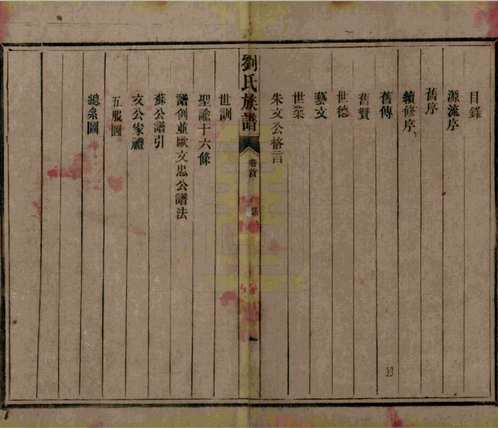 目錄
源流序
舊序
續修序
舊傳
舊賢
世德
藝文
世業
朱文公格言
劉氏族譜
卷首
世訓
聖諭十六條
譜例並歐文忠公譜法
蘇公譜引
文公家禮
五服圖
總系圖